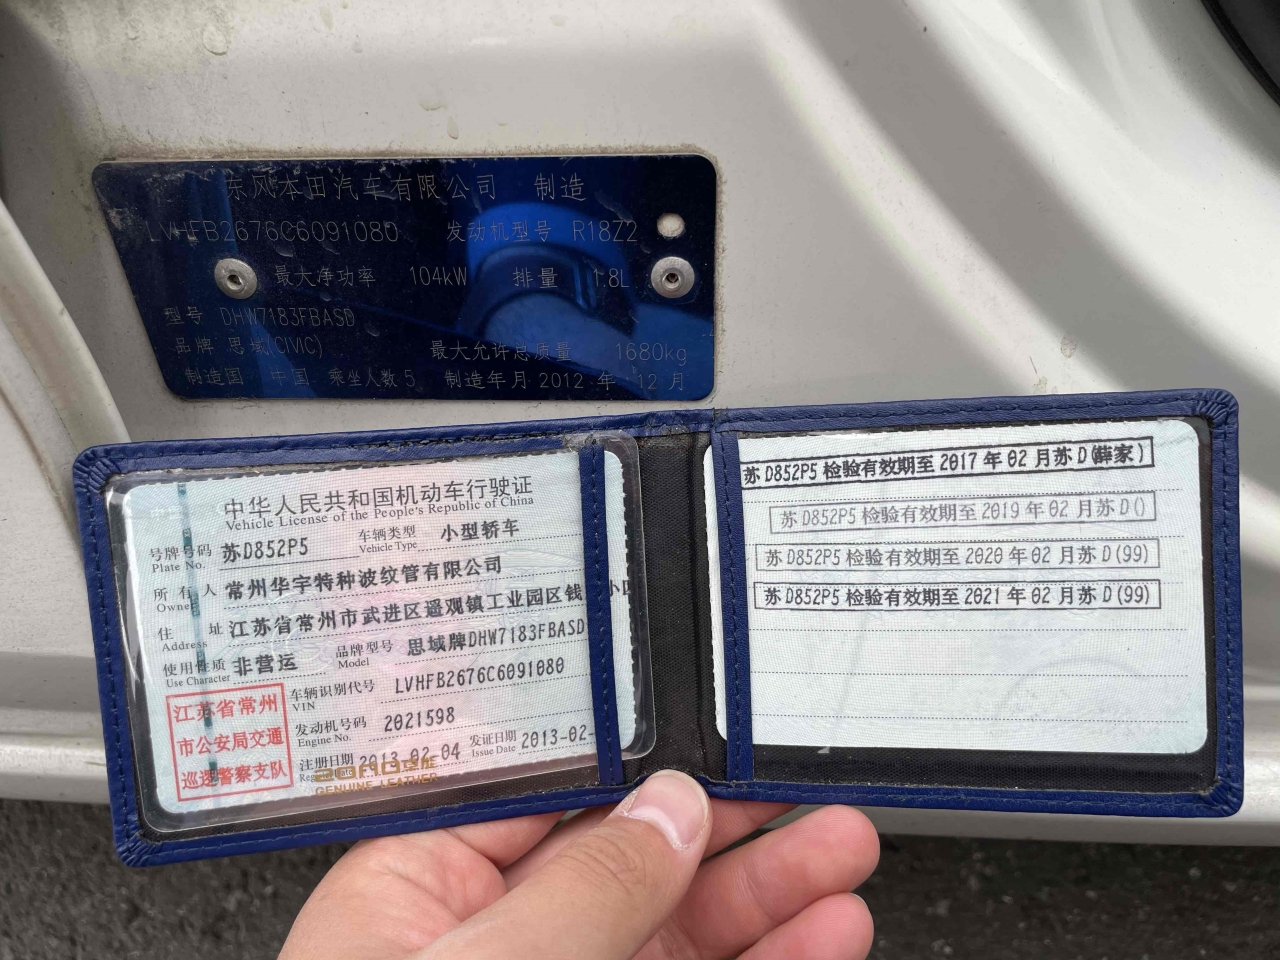 东风本田汽车有限公司 制造
LVHFB2676C6091080 发动机型号 R18Z2
最大净功率 104kW 排量 1.8L
型号 DHW7183FBASD
品牌 思域(CIVIC) 最大允许总质量 1680kg
制造国 中国 乘坐人数 5 制造年月 2012 年 12 月
中华人民共和国机动车行驶证
Vehicle License of the People's Republic of China
号牌号码 苏D852P5 车辆类型 小型轿车
Plate No. Vehicle Type
所有人 常州华宇特种波纹管有限公司
Owner
住址 江苏省常州市武进区遥观镇工业园区钱
Address
使用性质 非营运 品牌型号 思域牌DHW7183FBASD
Use Character Model
江苏省常州
市公安局交通
巡逻警察支队
车辆识别代号 LVHFB2676C6091080
VIN
发动机号码 2021598
Engine No.
注册日期 2013-02-04 发证日期 2013-02-
Issue Date
GENUINE LEATHER
苏D852P5 检验有效期至 2017 年 02 月苏 D(薛家)
苏D852P5 检验有效期至 2019 年 02 月苏 D()
苏D852P5 检验有效期至 2020 年 02 月苏 D(99)
苏D852P5 检验有效期至 2021 年 02 月苏 D(99)